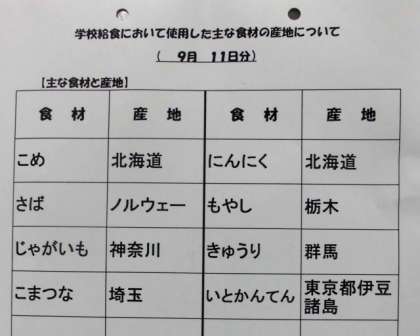 学校給食において使用した主な食材の産地について
( 9月 11日分)
【主な食材と産地】
食 材 産 地 食 材 産 地
こめ 北海道 にんにく 北海道
さば ノルウェー もやし 栃木
じゃがいも 神奈川 きゅうり 群馬
こまつな 埼玉 いとかんてん 東京都伊豆
諸島